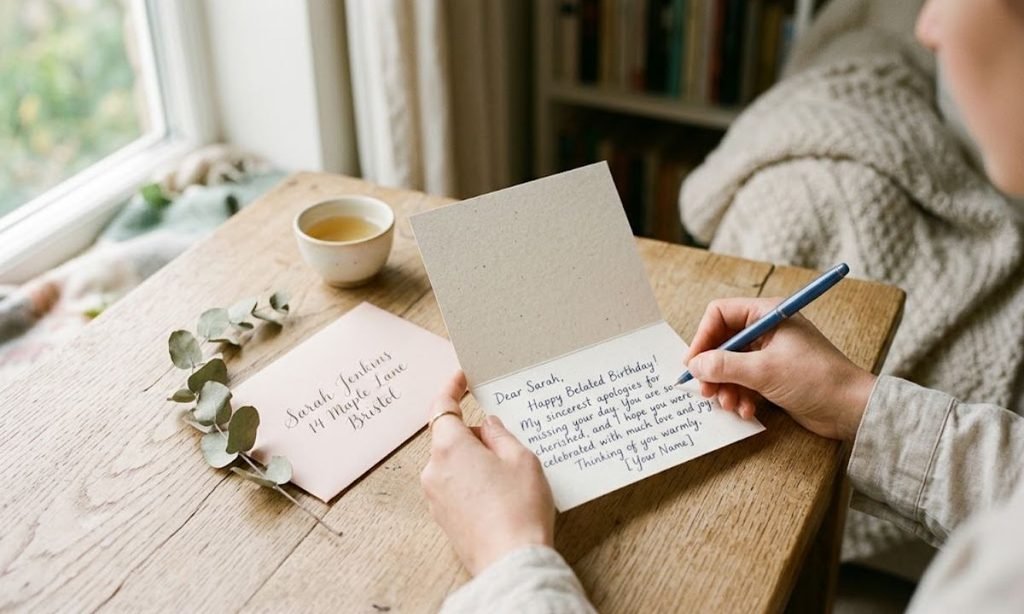 Sarah Jenkins
14 Maple Lane
Bristol
Dear Sarah,
Happy Belated Birthday!
My sincerest apologies for
missing your day. You are so
cherished, and I hope you were
celebrated with much love and joy.
Thinking of you warmly,
[Your Name]